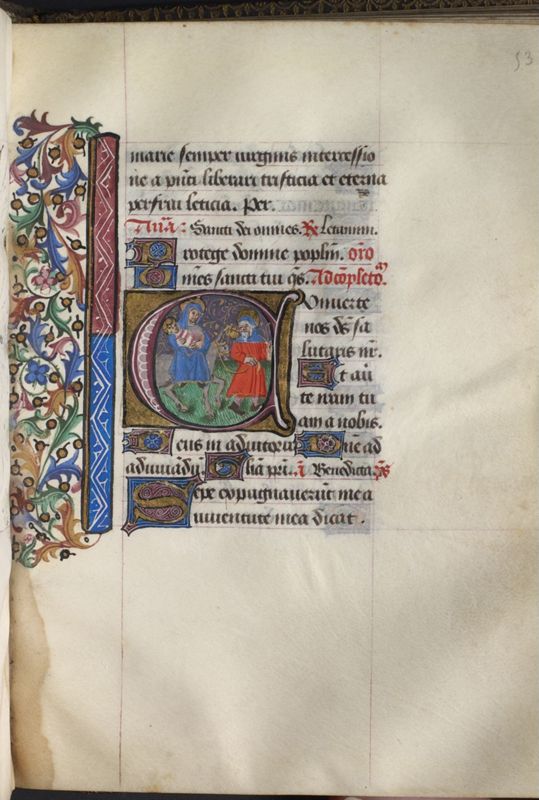 53
marie semper uirginis intercessio
ne a pñti liberari tristicia et eterna
perfrui leticia. Per.
Añã: Sancti dei omnes. R Letamini.
Protege domine poplm̃. oro
Omnes sancti tui q̃s. Ad cõpletoᷓ.
Conuerte
nos ds̃ sa
lutaris nr̃.
Et aũ
te iram tu
am a nobis.
Deus in adiutoriũ Dñe ad
adiuuãdũ. Gl̃ia pr̃i. ã Benedicta. p̃s
Sepe expugnauerũt me a
iuuentute mea dicat.